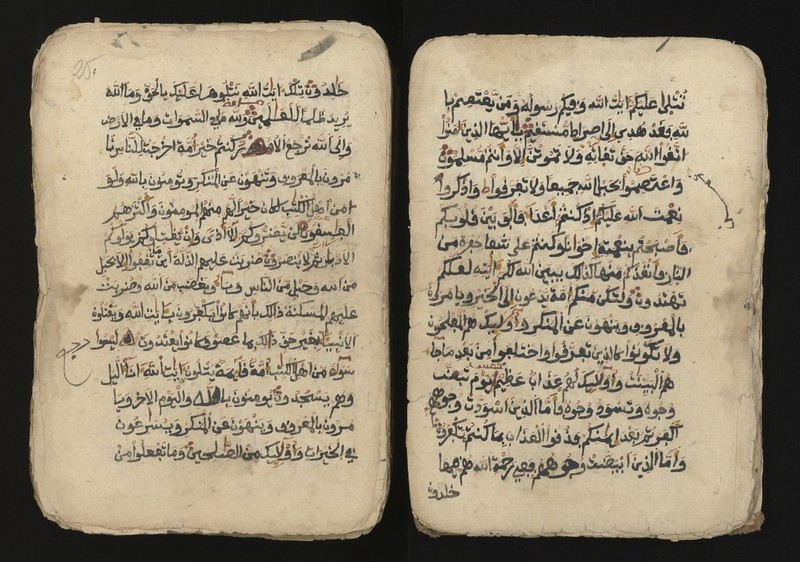 تتلى عليكم ايت الله وفيكم رسوله ومن يعتصم با
لله فقد هدي إلى صراط مستقيم يأيها الذين امنوا
اتقوا الله حق تقاته ولا تموتن إلا وأنتم مسلمون
واعتصموا بحبل الله جميعا ولا تفرقوا واذكروا
نعمت الله عليكم إذ كنتم أعداء فألف بين قلوبكم
فأصبحتم بنعمته إخوانا وكنتم على شفا حفرة من
النار فأنقذكم منها كذلك يبين الله لكم ايته لعلكم
تهتدون ولتكن منكم أمة يدعون إلى الخير ويامرون
بالمعروف وينهون عن المنكر وأوليك هم المفلحون
ولا تكونوا كالذين تفرقوا واختلفوا من بعد ما جا
هم البينت وأوليك لهم عذاب عظيم يوم تبيض
وجوه وتسود وجوه فأما الذين اسودت وجوههم
أكفرتم بعد إيمنكم فذوقوا العذاب بما كنتم تكفرون
وأما الذين ابيضت وجوههم ففي رحمة الله هم فيها
خلدون
25.
خلدون تلك ايت الله نتلوها عليك بالحق وما الله
يريد ظلما للعلمين ولله ما في السموات وما في الأرض
وإلى الله ترجع الأمور كنتم خير أمة أخرجت للناس تا
مرون بالمعروف وتنهون عن المنكر وتومنون بالله ولو
امن أهل الكتب لكان خيرا لهم منهم المومنون وأكثرهم
الفسقون لن يضروكم إلا أذى وإن يقتلوكم يولوكم
الأدبار ثم لا ينصرون ضربت عليهم الذلة أين ما ثقفوا إلا بحبل
من الله وحبل من الناس وباءو بغضب من الله وضربت
عليهم المسكنة ذالك بأنهم كانوا يكفرون بئايت الله ويقتلون
الانبياء بغير حق ذالك بما عصوا وكانوا يعتدون ليسوا
سواء من أهل الكتب أمة قايمة يتلون ايت الله اناء اليل
وهم يسجدون يومنون بالله واليوم الاخر ويا
مرون بالمعروف وينهون عن المنكر ويسرعون
في الخيرات وأوليك من الصلحين وما تفعلوا من